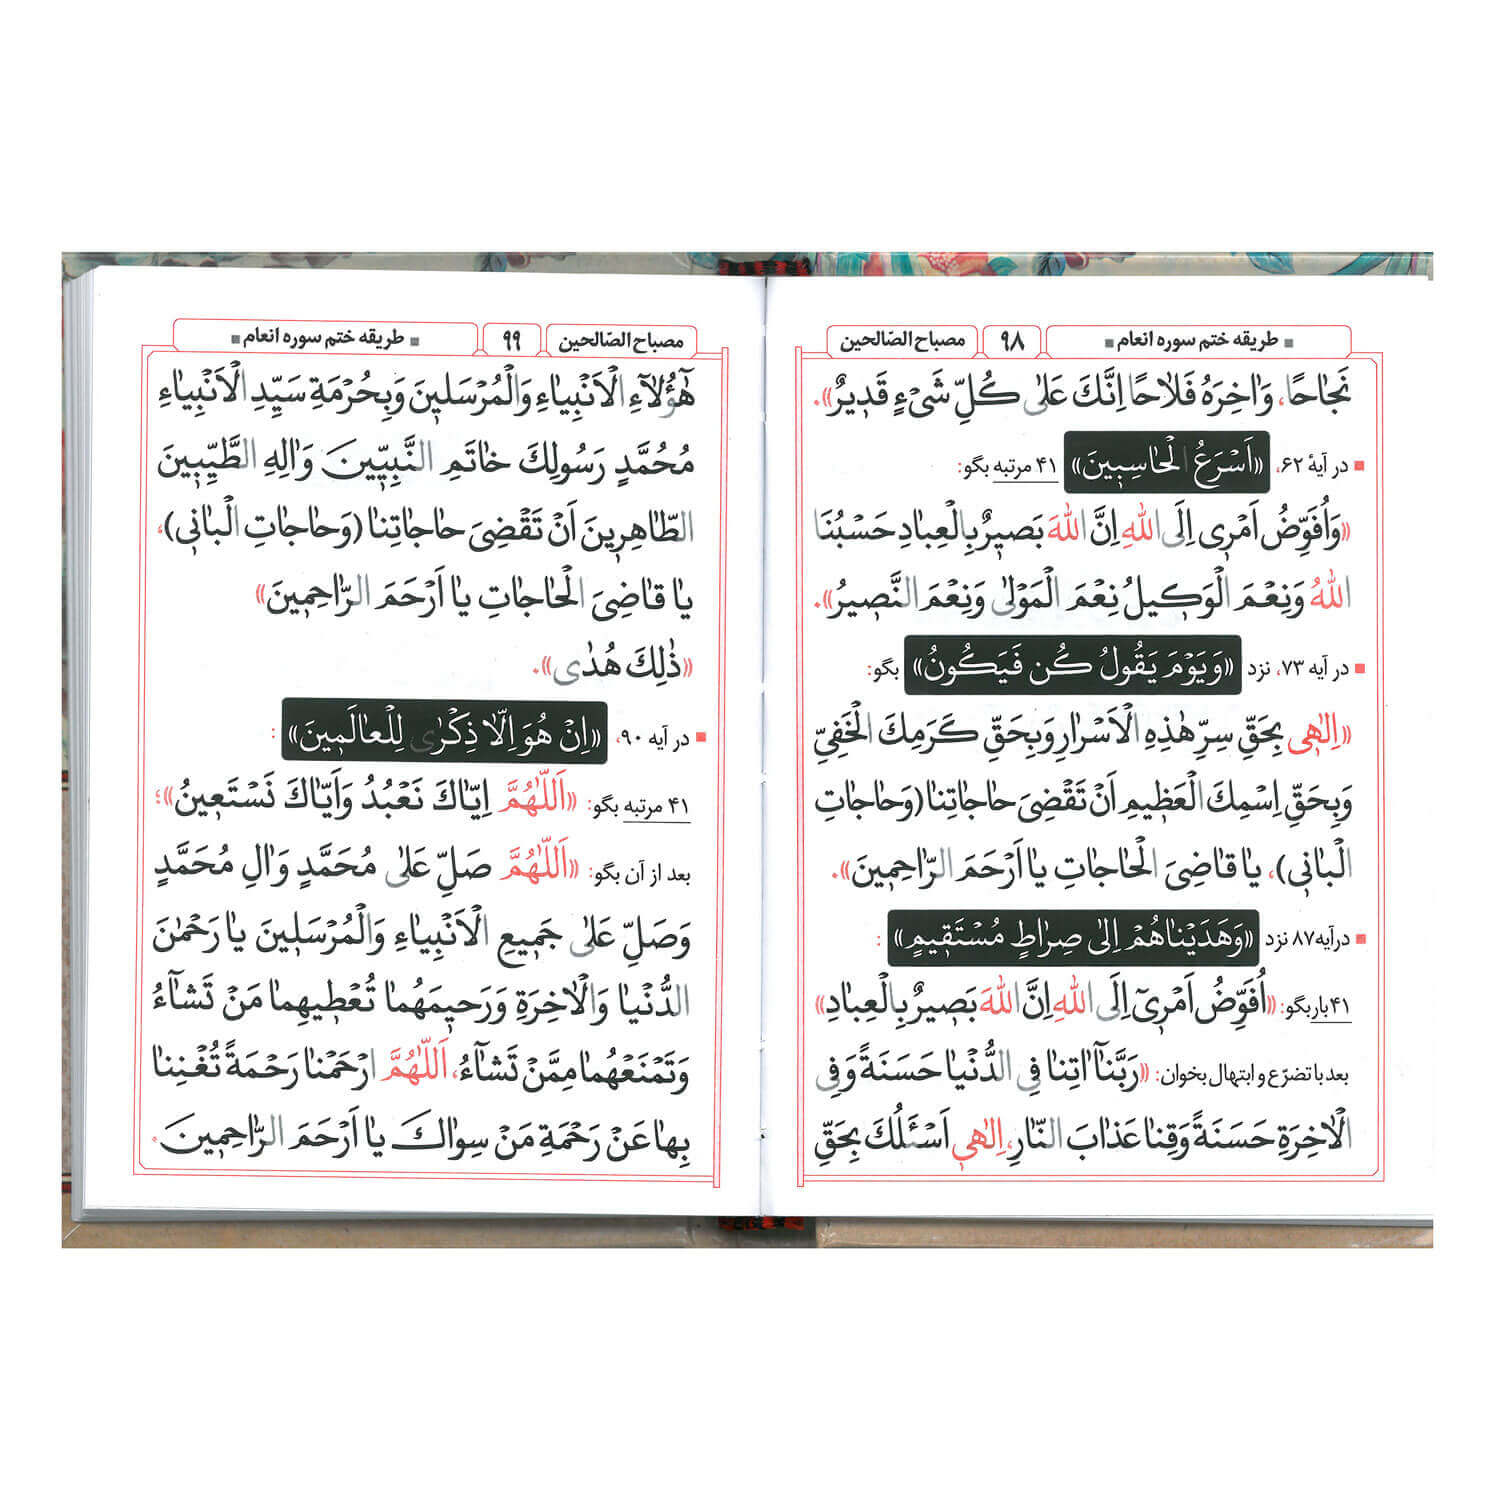 ▪ طریقه ختم سوره انعام ▪ ۹۸ مصباح الصّالحین
نَجاحًا، وَاخِرَهُ فَلاحًا اِنَّكَ عَلىٰ كُلِّ شَىْءٍ قَديرٌ».
▪ در آیهٔ ۶۲، «اَسْرَعُ الْحاسِبينَ» ۴۱ مرتبه بگو:
«وَاُفَوِّضُ اَمْرى اِلَى اللهِ اِنَّ اللهَ بَصيرٌ بِالْعِبادِ حَسْبُنَا
اللهُ وَنِعْمَ الْوَكيلُ نِعْمَ الْمَوْلىٰ وَنِعْمَ النَّصيرُ».
▪ در آیه ۷۳، نزد «وَيَوْمَ يَقُولُ كُن فَيَكُونُ» بگو:
«اِلٰهى بِحَقِّ سِرِّ هٰذِهِ الْاَسْرارِ وَبِحَقِّ كَرَمِكَ الْخَفِىِّ
وَبِحَقِّ اِسْمِكَ الْعَظيمِ اَنْ تَقْضِىَ حاجاتِنا (وَحاجاتِ
الْبانى)، يا قاضِىَ الْحاجاتِ يا اَرْحَمَ الرّاحِمينَ».
▪ درآیه۸۷ نزد «وَهَدَيْناهُمْ اِلىٰ صِراطٍ مُسْتَقيمٍ» :
۴۱بار بگو: «اُفَوِّضُ اَمْرىٓ اِلَى اللهِ اِنَّ اللهَ بَصيرٌ بِالْعِبادِ»
بعد با تضرّع و ابتهال بخوان: «رَبَّنآ اتِنا فِى الدُّنْيا حَسَنَةً وَفِى
الْاخِرَةِ حَسَنَةً وَقِنا عَذابَ النّارِ، اِلٰهى اَسْئَلُكَ بِحَقِّ
مصباح الصّالحین ۹۹ ▪ طریقه ختم سوره انعام ▪
هٰٓؤُلآءِ الْاَنْبِياءِ وَالْمُرْسَلينَ وَبِحُرْمَةِ سَيِّدِ الْاَنْبِياءِ
مُحُمَّدٍ رَسُولِكَ خاتَمِ النَّبِيّينَ وَالِهِ الطَّيِّبينَ
الطّاهِرينَ اَنْ تَقْضِىَ حاجاتِنا (وَحاجاتِ الْبانى)،
يا قاضِىَ الْحاجاتِ يا اَرْحَمَ الرّاحِمينَ»
«ذٰلِكَ هُدٰى».
▪ در آیه ۹۰، «اِنْ هُوَ اِلّا ذِكْرٰى لِلْعالَمينَ» :
۴۱ مرتبه بگو: «اَللّٰهُمَّ اِيّاكَ نَعْبُدُ وَاَيّاكَ نَسْتَعينُ»؛
بعد از آن بگو: «اَللّٰهُمَّ صَلِّ عَلىٰ مُحَمَّدٍ وَالِ مُحَمَّدٍ
وَصَلِّ عَلىٰ جَميعِ الْاَنْبِياءِ وَالْمُرْسَلينَ يا رَحْمٰنَ
الدُّنْيا وَالْاخِرَةِ وَرَحيمَهُما تُعْطيهِما مَنْ تَشآءُ
وَتَمْنَعْهُما مِمَّنْ تَشآءُ، اَللّٰهُمَّ ارْحَمْنا رَحْمَةً تُغْنِنا
بِها عَنْ رَحْمَةِ مَنْ سِواكَ يا اَرْحَمَ الرّاحِمينَ.